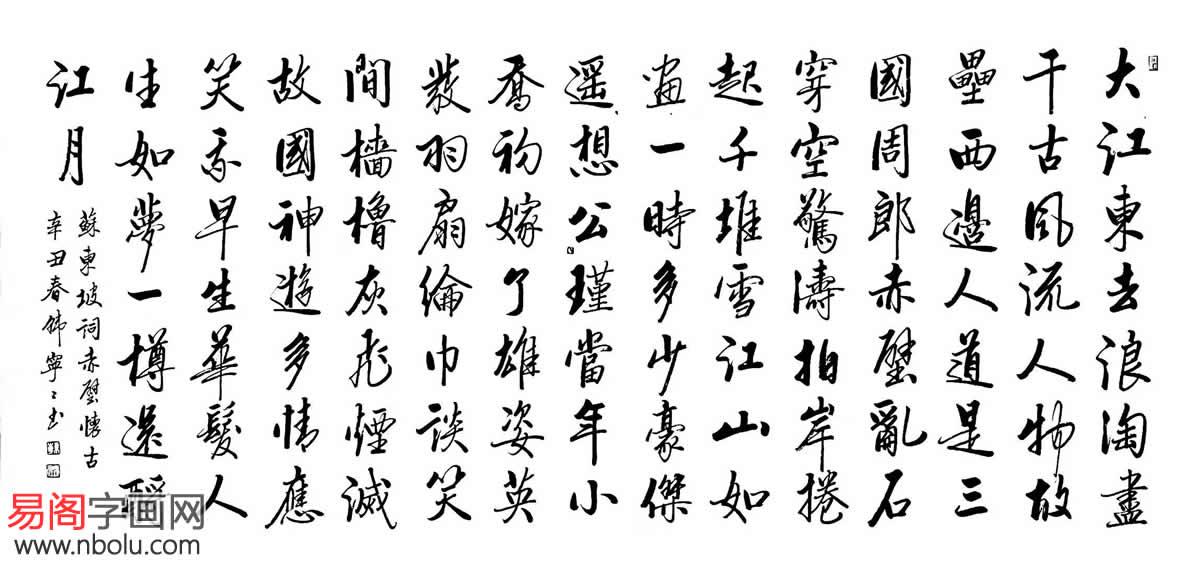 大江東去浪淘盡
千古風流人物故
壘西邊人道是三
國周郎赤壁亂石
穿空驚濤拍岸捲
起千堆雪江山如
畫一時多少豪傑
遥想公瑾當年小
喬初嫁了雄姿英
發羽扇綸巾談笑
間檣櫓灰飛煙滅
故國神遊多情應
笑我早生華髮人
生如夢一樽還酹
江月
蘇東坡詞赤壁懷古
辛丑春寧〻书
易阁字画网
www.nbolu.com